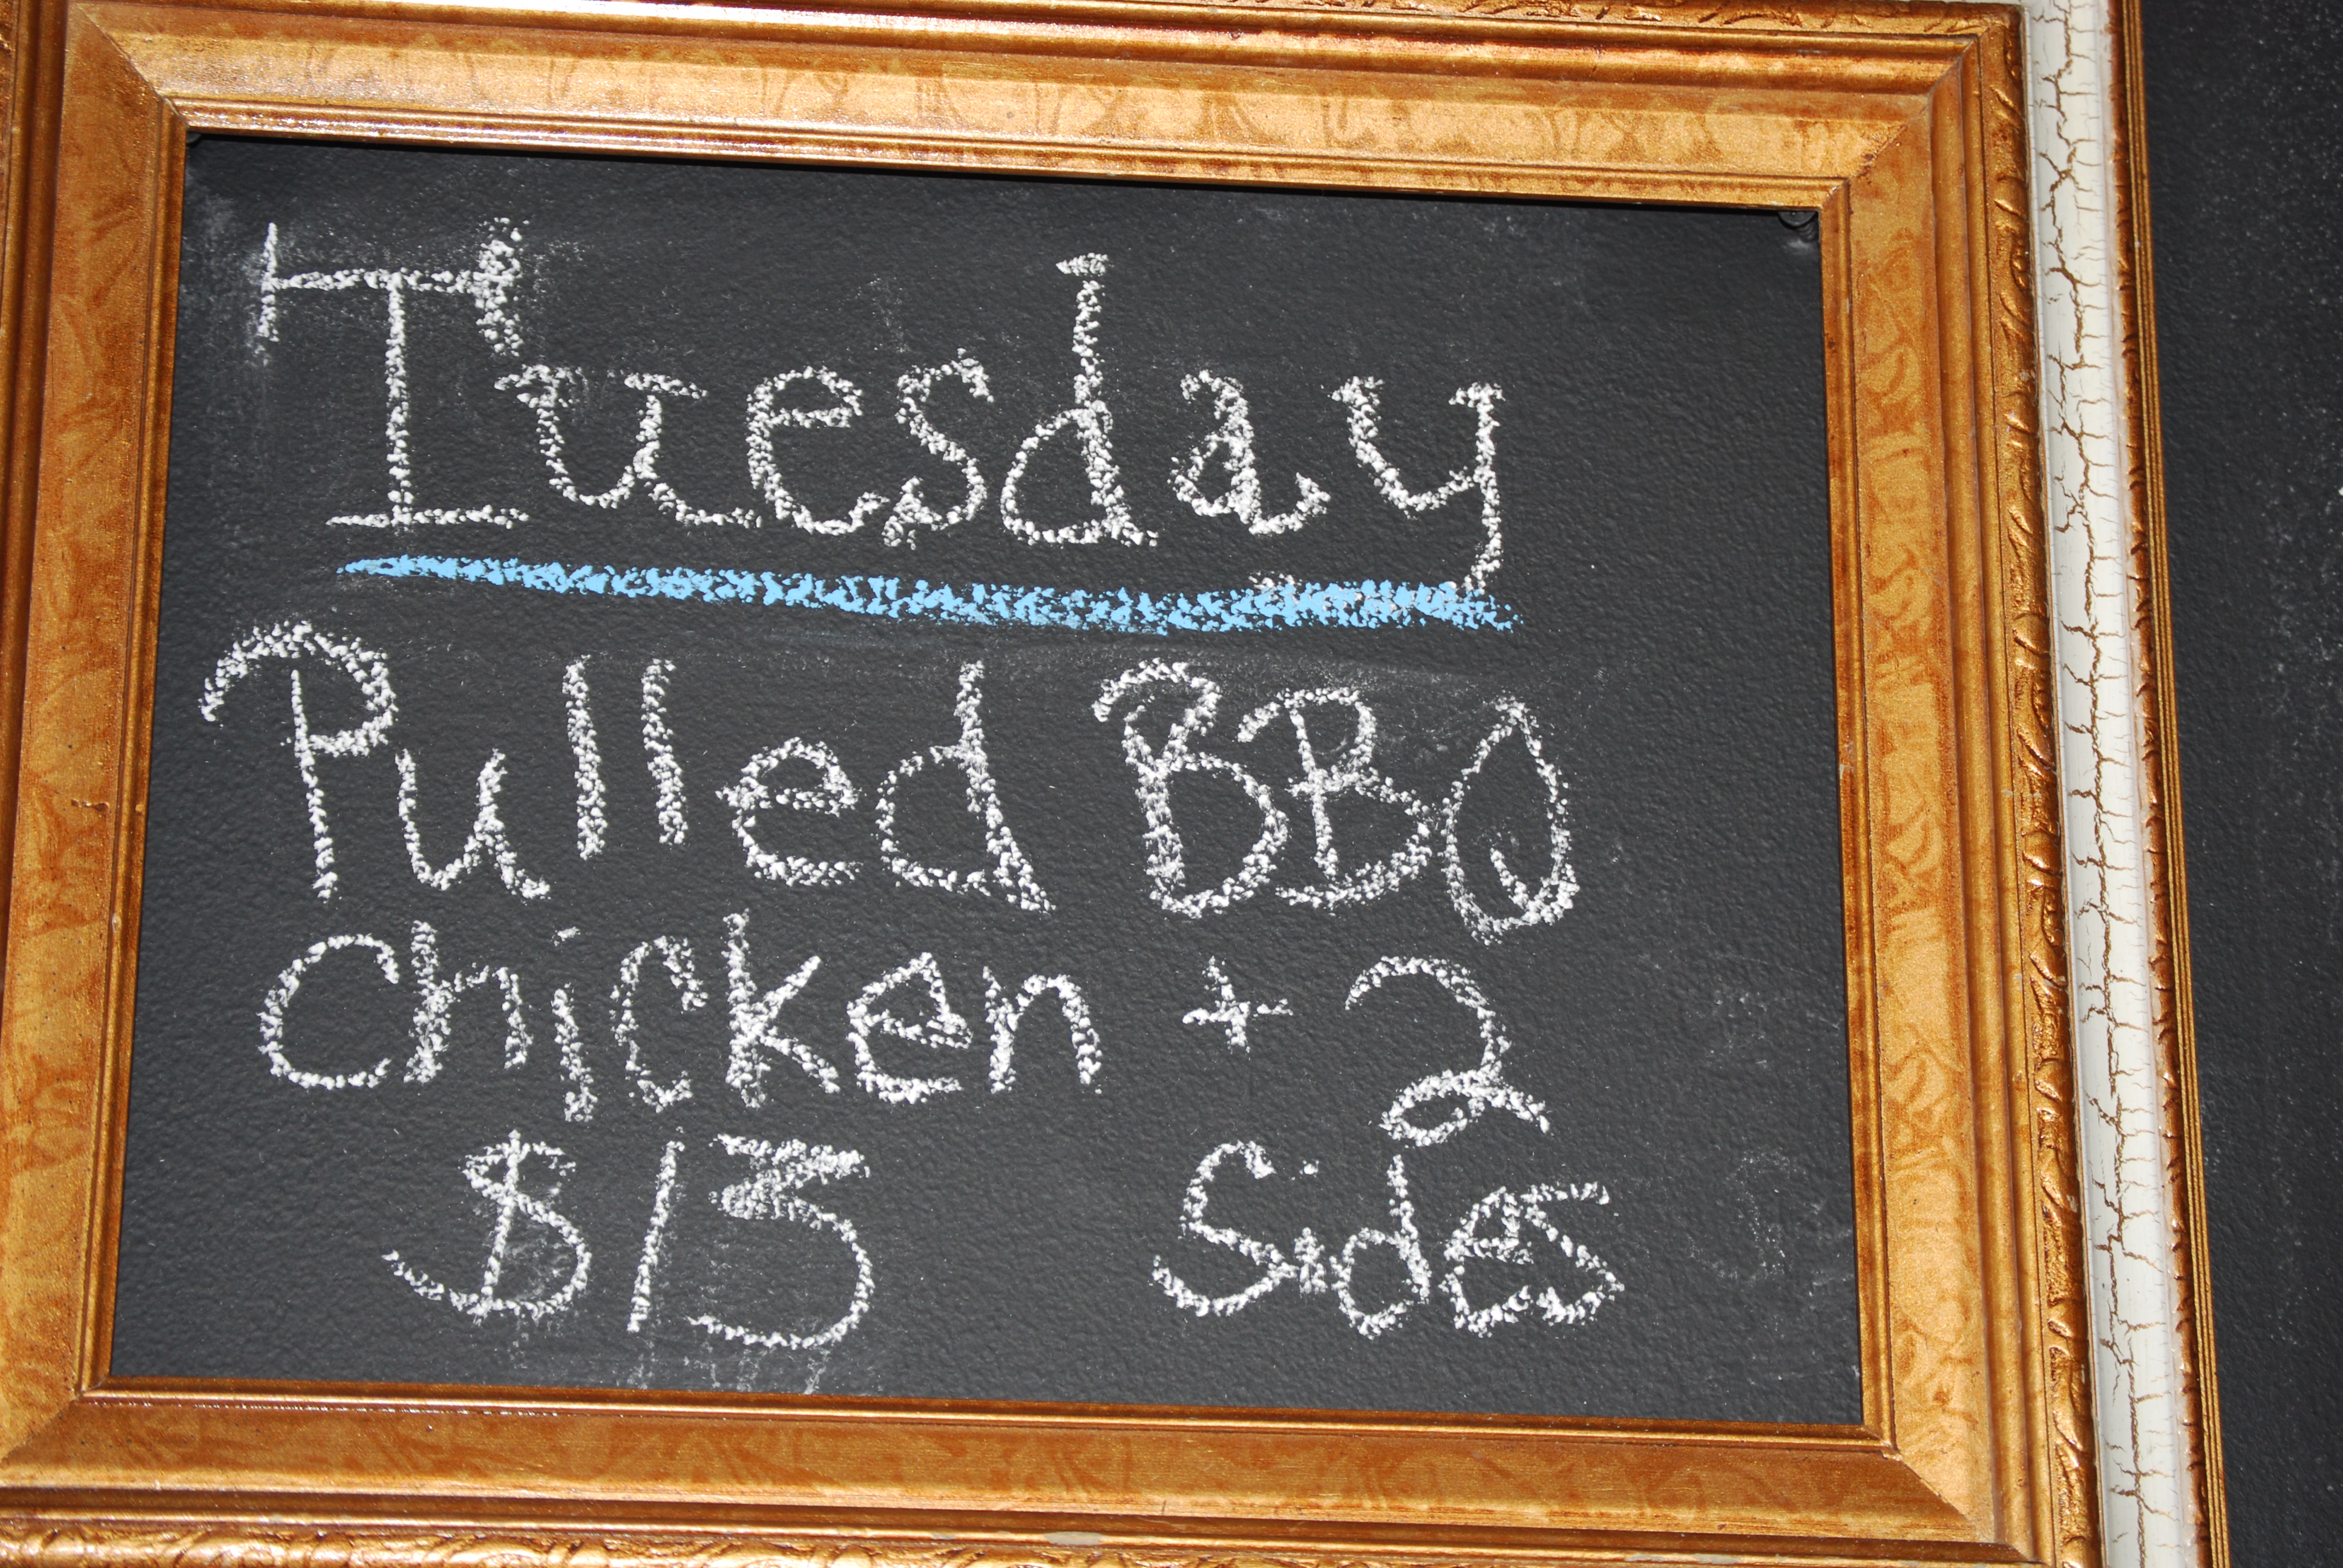 Tuesday
Pulled BBQ
Chicken + 2
$13 Sides